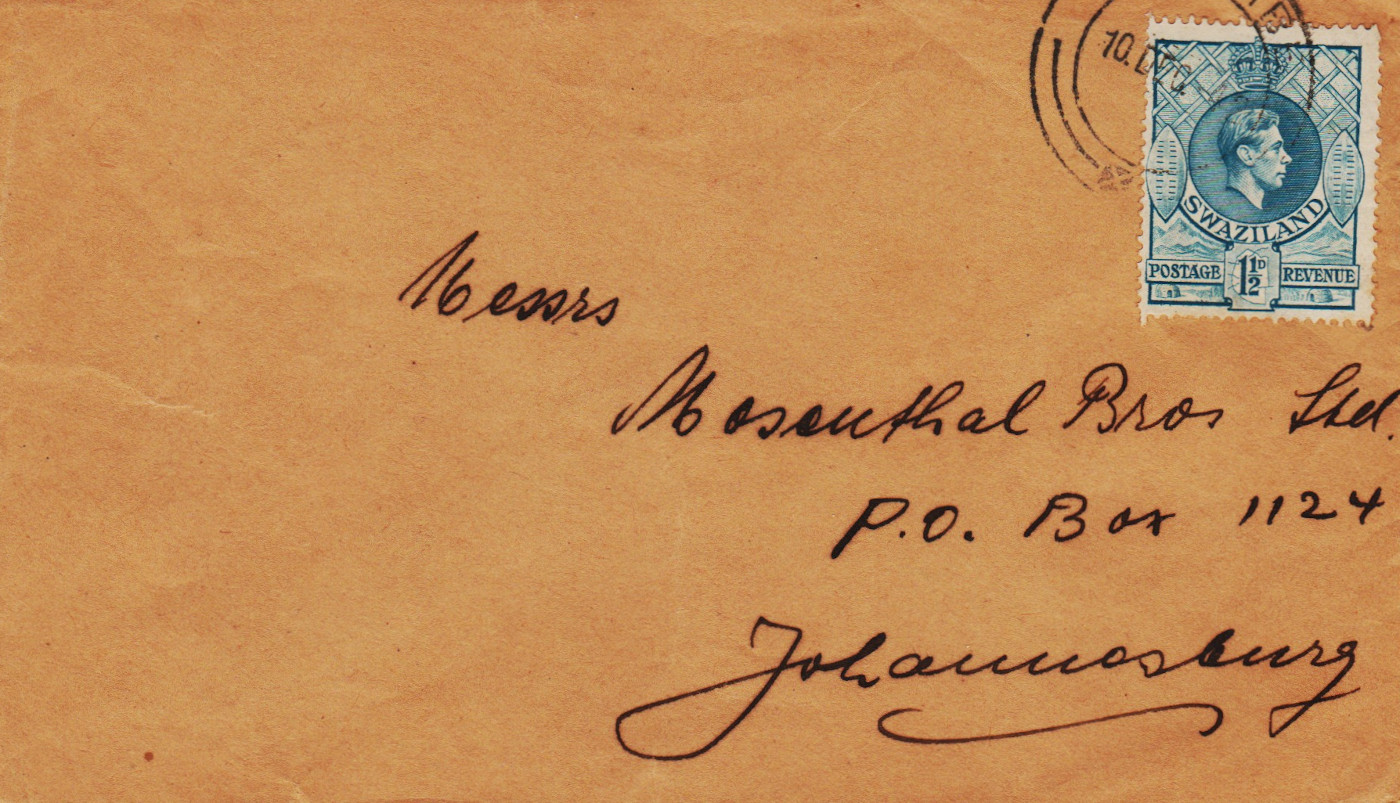 10.DEC
SWAZILAND
POSTAGE 1½D REVENUE
Messrs
Mosenthal Bros Ltd.
P.O. Box 1124
Johannesburg